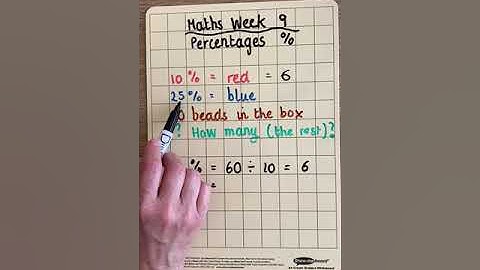 Maths Week 9
Percentages %
10% = red = 6
25% = blue
0 beads in the box
? How many (the rest)?
% = 60 ÷ 10 = 6
=